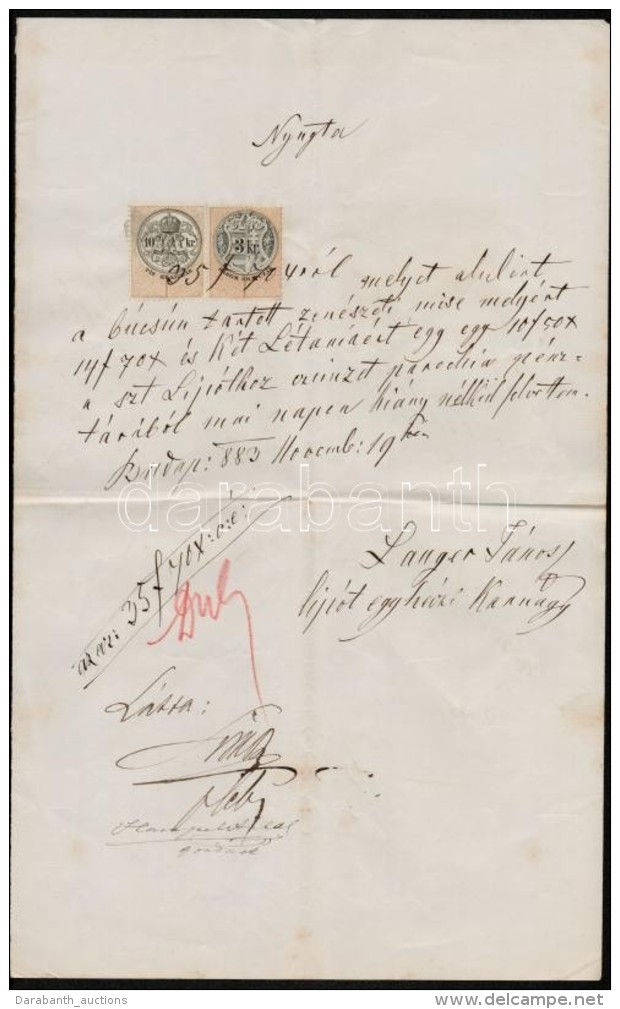 Nyugta
10 kr.
3 kr.
35 f 70xról melyet alulirt
a búcsún tartott zenészeti mise melyért
14f 70x és Két Létaniáért egy egy 10f50x
a szt Lipóthoz czimzet parochia pénz-
tárából mai napon hiány nélkül felvettem.
Budap: 883 Novemb: 19
darabanth
azaz: 35f 70x: o:é:
Langer János
lipót egyházi Karnagy
Látta:
Darabanth_auctions
www.delcampe.net